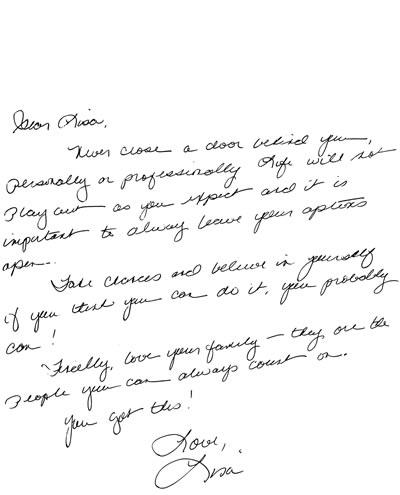 Dear Lisa,
Never close a door behind you,
personally or professionally Life will not
play out as you expect and it is
important to always leave your options
open..
Take chances and believe in yourself
if you think you can do it, you probably
can!
Finally, love your family – they are the
people you can always count on.
You got this!
Love,
Lisa